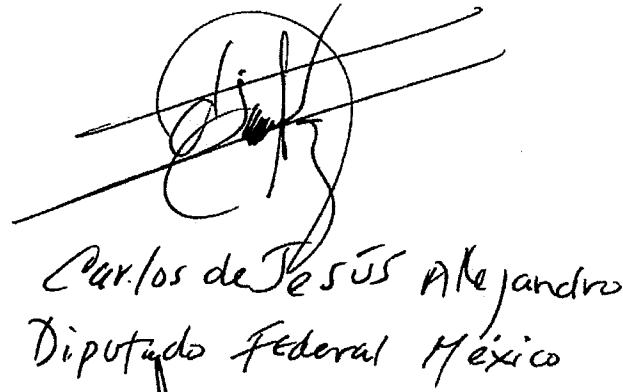 Carlos de Jesús Alejandro
Diputado Federal México